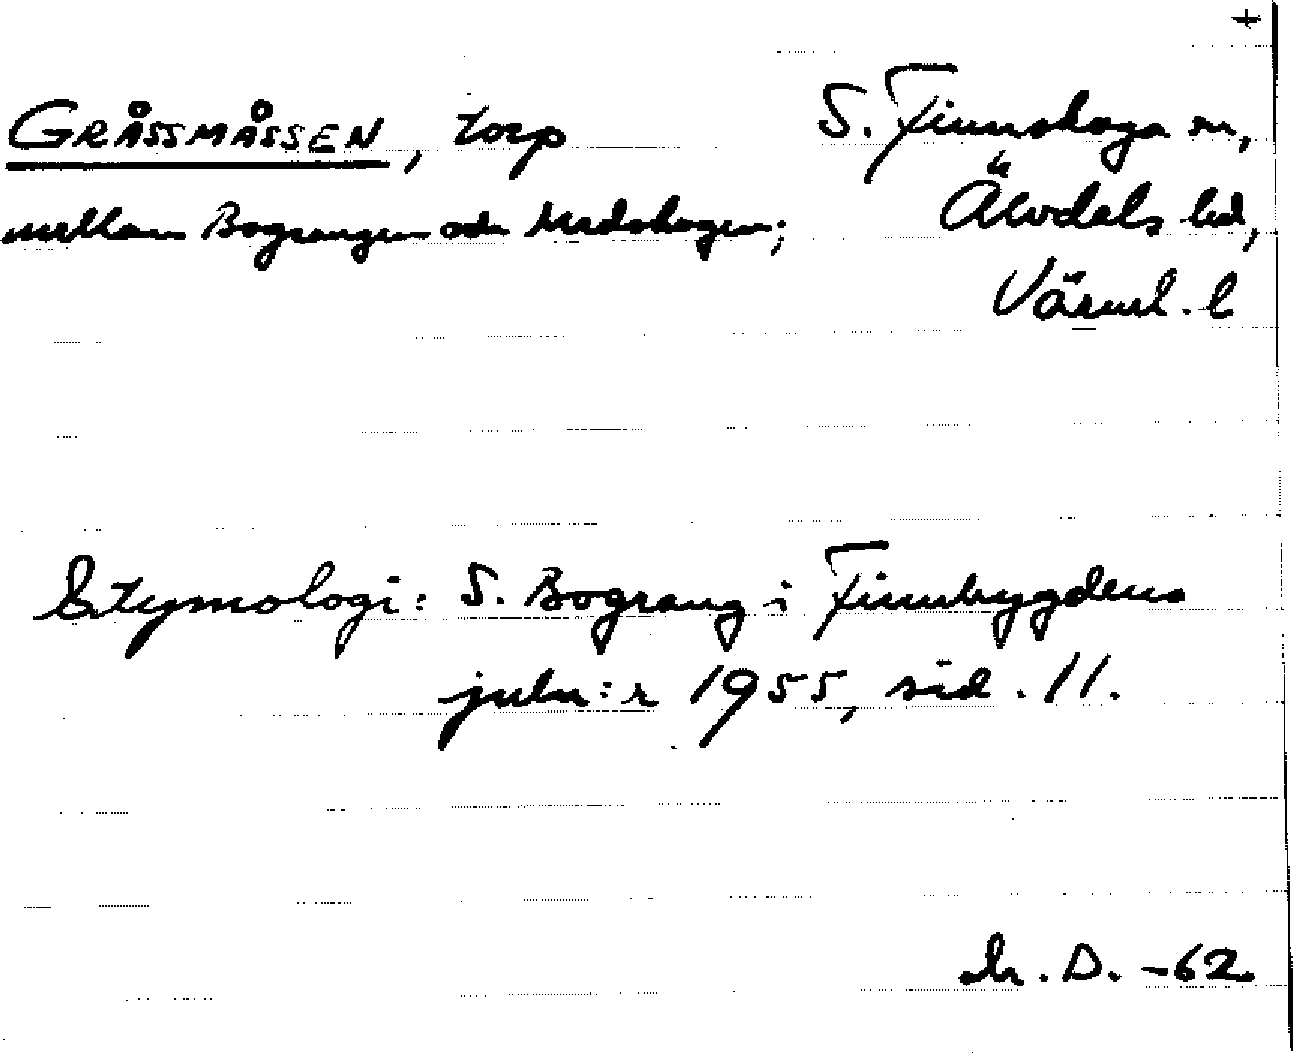 +
GRÅSSMÅSSEN, torp S. Finnskoga sn,
mellan Bograngen och Medskogen; Älvdals hd,
Värml. l
Etymologi: S. Bograng i Finnbygdens
julnr:r 1955, sid. 11.
D. -62